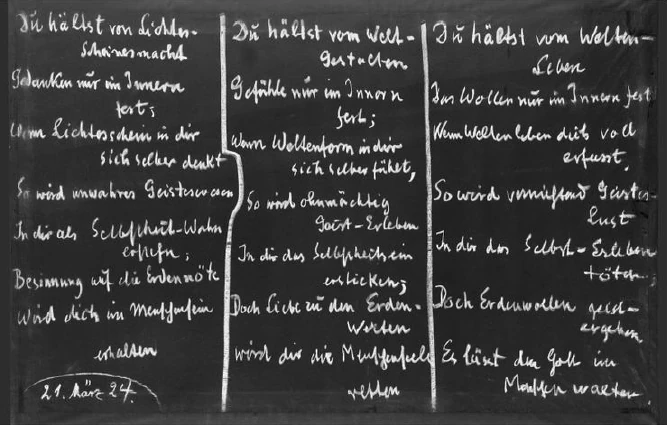 Du hältst von Lichtes-
Scheinesmacht
Gedanken nur im Innern
fest;
Wenn Lichtesschein in dir
sich selber denkt
So wird unwahres Geisteswesen
In dir als Selbstheit-Wahn
erstehn;
Besinnung auf die Erdennöte
Wird dich im Menschsein
erhalten
21. März 24.
Du hältst vom Welt-
Gestalten
Gefühle nur im Innern
fest;
Wenn Weltenform in dir
sich selber fühlt,
So wird ohnmächtig
Geist-Erleben
In dir das Selbstheitsein
ersticken;
Doch Liebe zu den Erden-
Werten
Wird dir die Menschenseele
retten
Du hältst vom Welten-
Leben
Das Wollen nur im Innern fest
Wenn Weltenleben dich voll
erfasst,
So wird vernichtend Geistes-
Lust
In dir das Selbst-Erleben
töten;
Doch Erdenwollen geist-
ergeben
Es lässt den Gott im
Menschen walten.